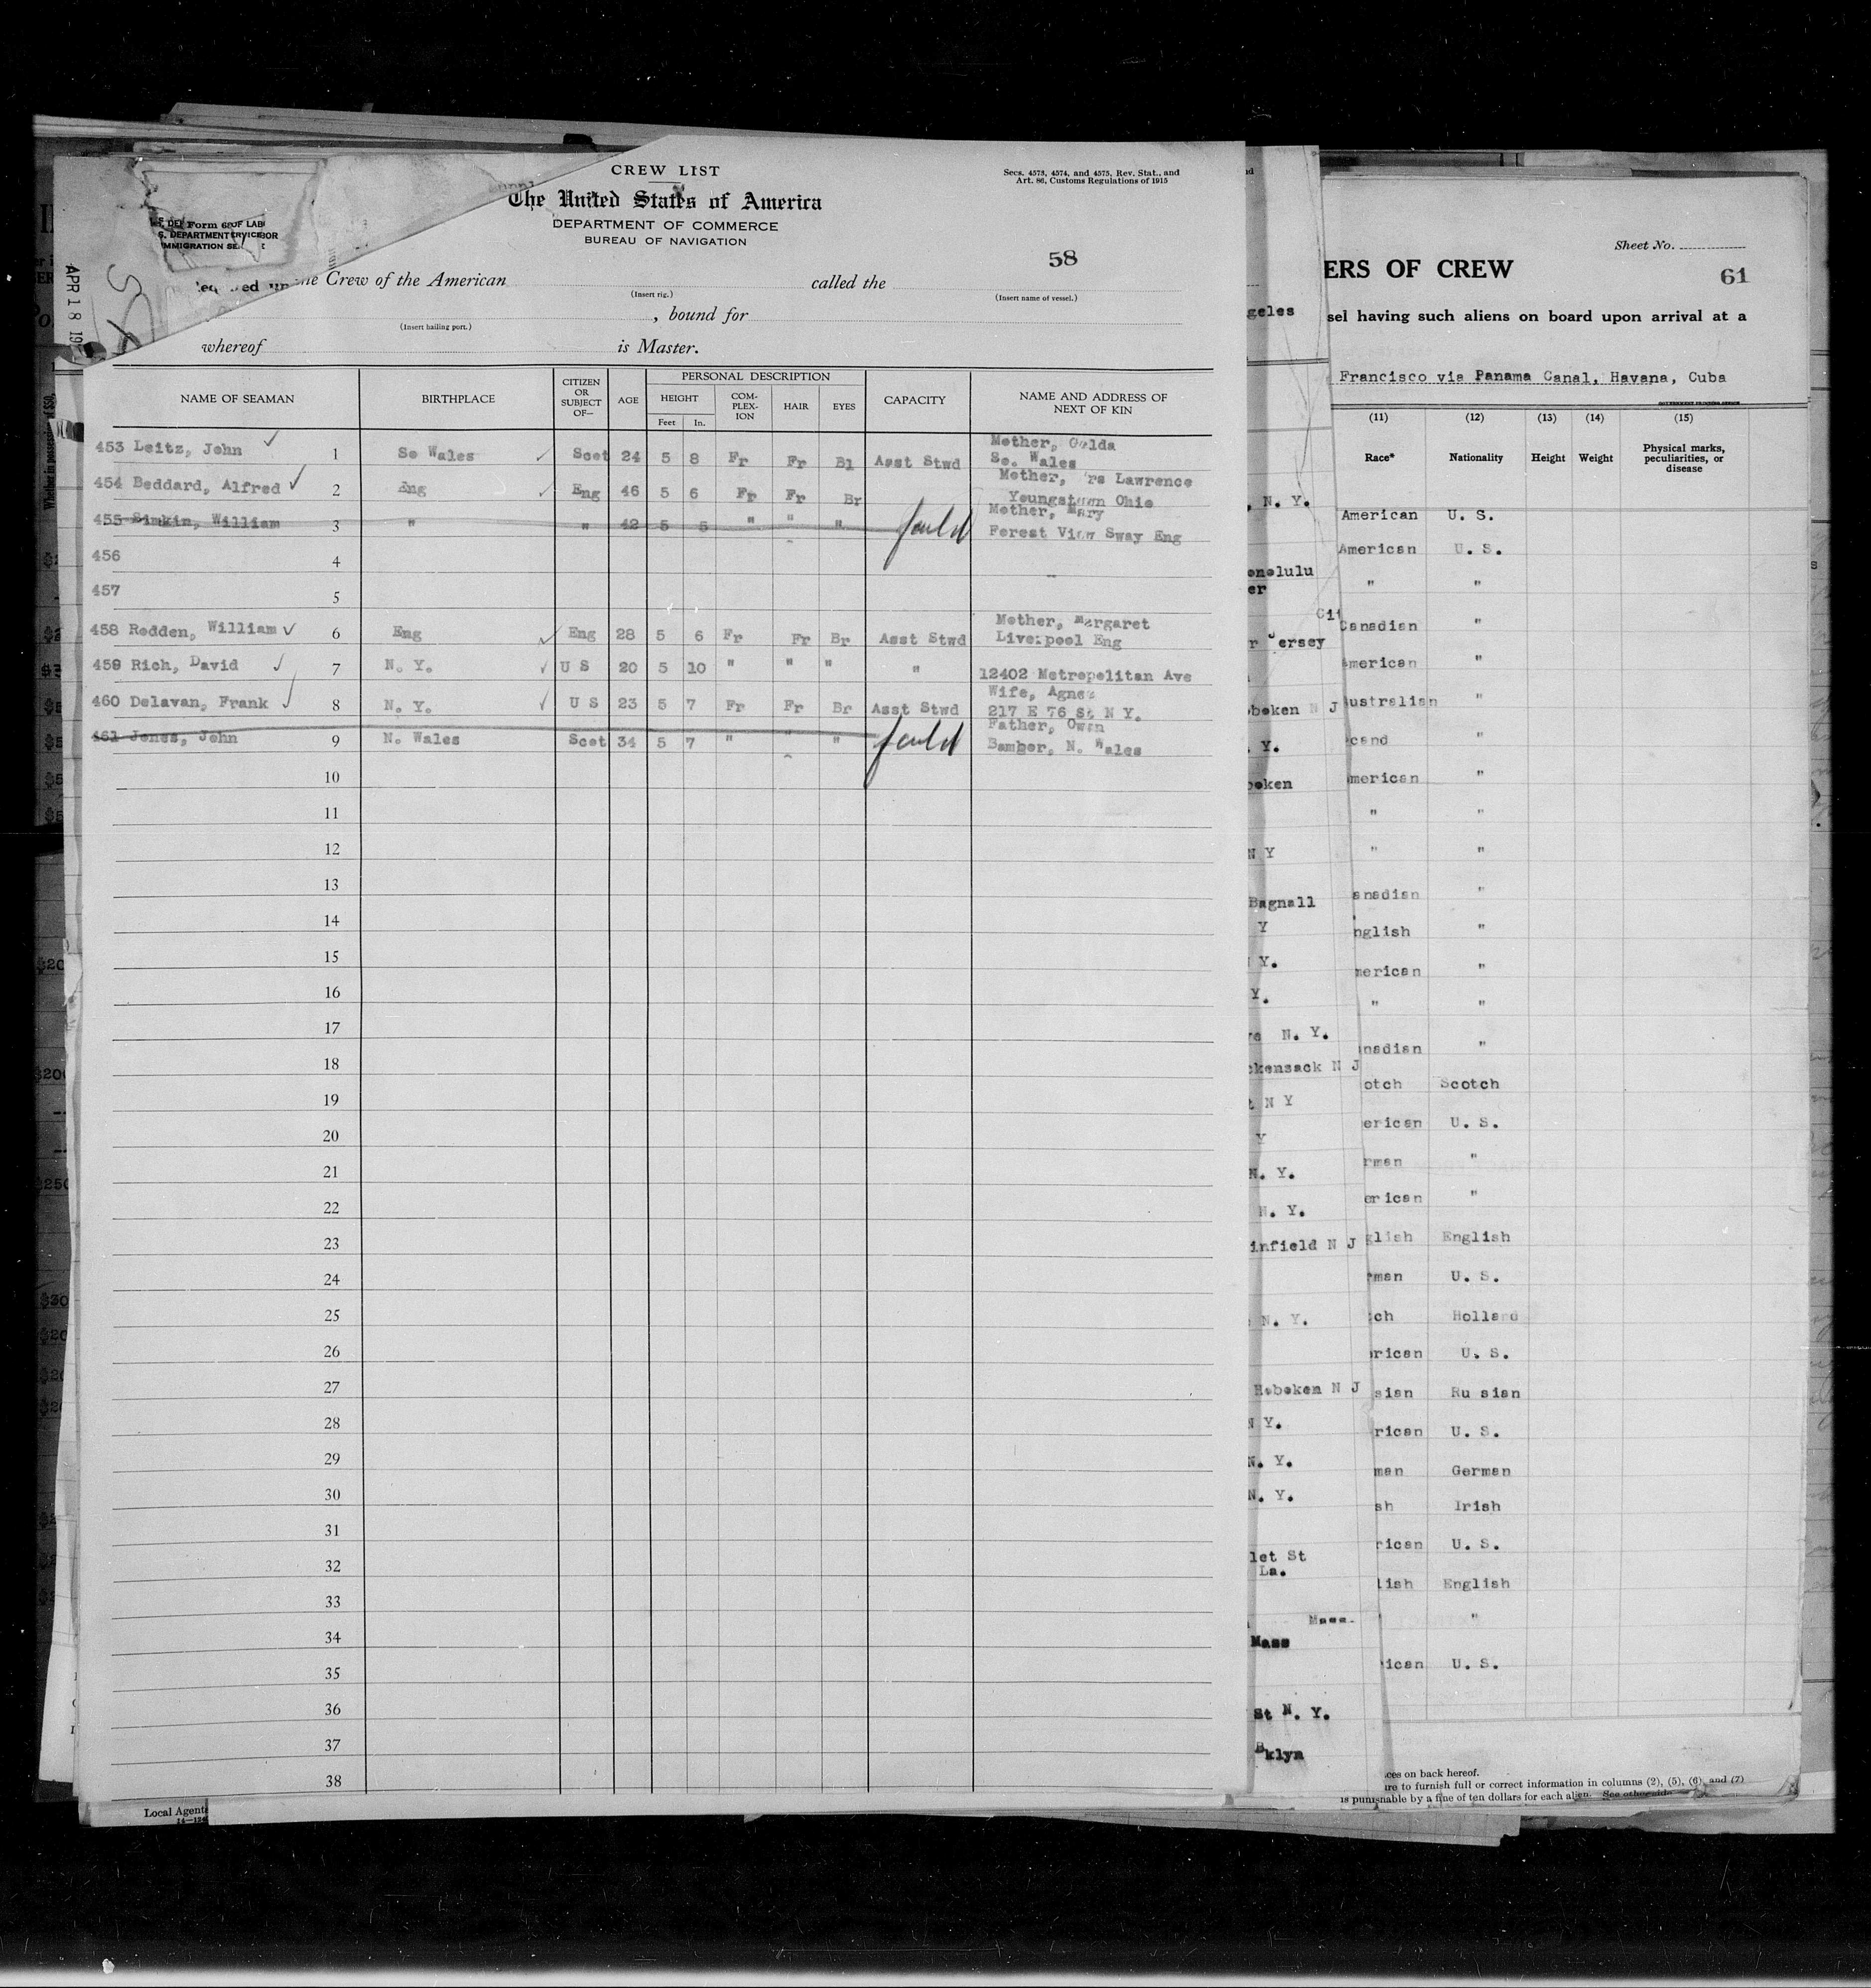 CREW LIST
Secs. 4573, 4574, and 4575, Rev. Stat., and
Art. 86, Customs Regulations of 1915
The United States of America
DEPARTMENT OF COMMERCE
BUREAU OF NAVIGATION
Form 6
DEPARTMENT
IMMIGRATION
APR 18
58
the Crew of the American
called the
(Insert rig.)
(Insert name of vessel.)
, bound for
(Insert hailing port.)
whereof
is Master.
NAME OF SEAMAN BIRTHPLACE CITIZEN OR SUBJECT OF— AGE PERSONAL DESCRIPTION CAPACITY NAME AND ADDRESS OF NEXT OF KIN
HEIGHT COM-PLEX-ION HAIR EYES
Feet In.
453 Leitz, John 1 So Wales Scot 24 5 8 Fr Fr Bl Asst Stwd Mother,
So. Wales
454 Beddard, Alfred 2 Eng Eng 46 5 6 Fr Fr Br Mother, rs Lawrence
Youngstown Ohio
455 Simkin, William 3 " " 42 5 5 " " " Mother, Mary
Forest View Sway Eng
456 4
457 5
458 Redden, William 6 Eng Eng 28 5 6 Fr Fr Br Asst Stwd Mother, Margaret
Liverpool Eng
459 Rich, David 7 N. Y. U S 20 5 10 " " " " 12402 Metropolitan Ave
460 Delavan, Frank 8 N. Y. U S 23 5 7 Fr Fr Br Asst Stwd Wife, Agnes
217 E 76 St N Y.
461 Jones, John 9 N. Wales Scot 34 5 7 " " " Father, Owen
Bamber, N. Wales
10
11
12
13
14
15
16
17
18
19
20
21
22
23
24
25
26
27
28
29
30
31
32
33
34
35
36
37
38
Local Agents
geles
N. Y.
onolulu
er
r Jersey
boken N J
Y.
boken
N Y
Bagnall
Y
Y.
Y.
N. Y.
ckensack N J
t N Y
Y
N. Y.
N. Y.
infield N J
N. Y.
Hoboken N J
N Y.
N. Y.
N. Y.
let St
La.
Mass.
Mass
St N. Y.
Bklyn
Sheet No.
ERS OF CREW
61
sel having such aliens on board upon arrival at a
Francisco via Panama Canal, Havana, Cuba
(11) (12) (13) (14) (15)
Race* Nationality Height Weight Physical marks, peculiarities, or disease
American U. S.
American U. S.
" "
Canadian "
American "
Australian "
cand "
merican "
" "
" "
anadian "
nglish "
merican "
" "
nadian "
otch Scotch
erican U. S.
rman "
erican "
glish English
rman U. S.
ch Holland
rican U. S.
sian Ru sian
rican U. S.
man German
sh Irish
rican U. S.
lish English
"
ican U. S.
ces on back hereof.
ure to furnish full or correct information in columns (2), (5), (6), and (7)
is punishable by a fine of ten dollars for each alien. See other side